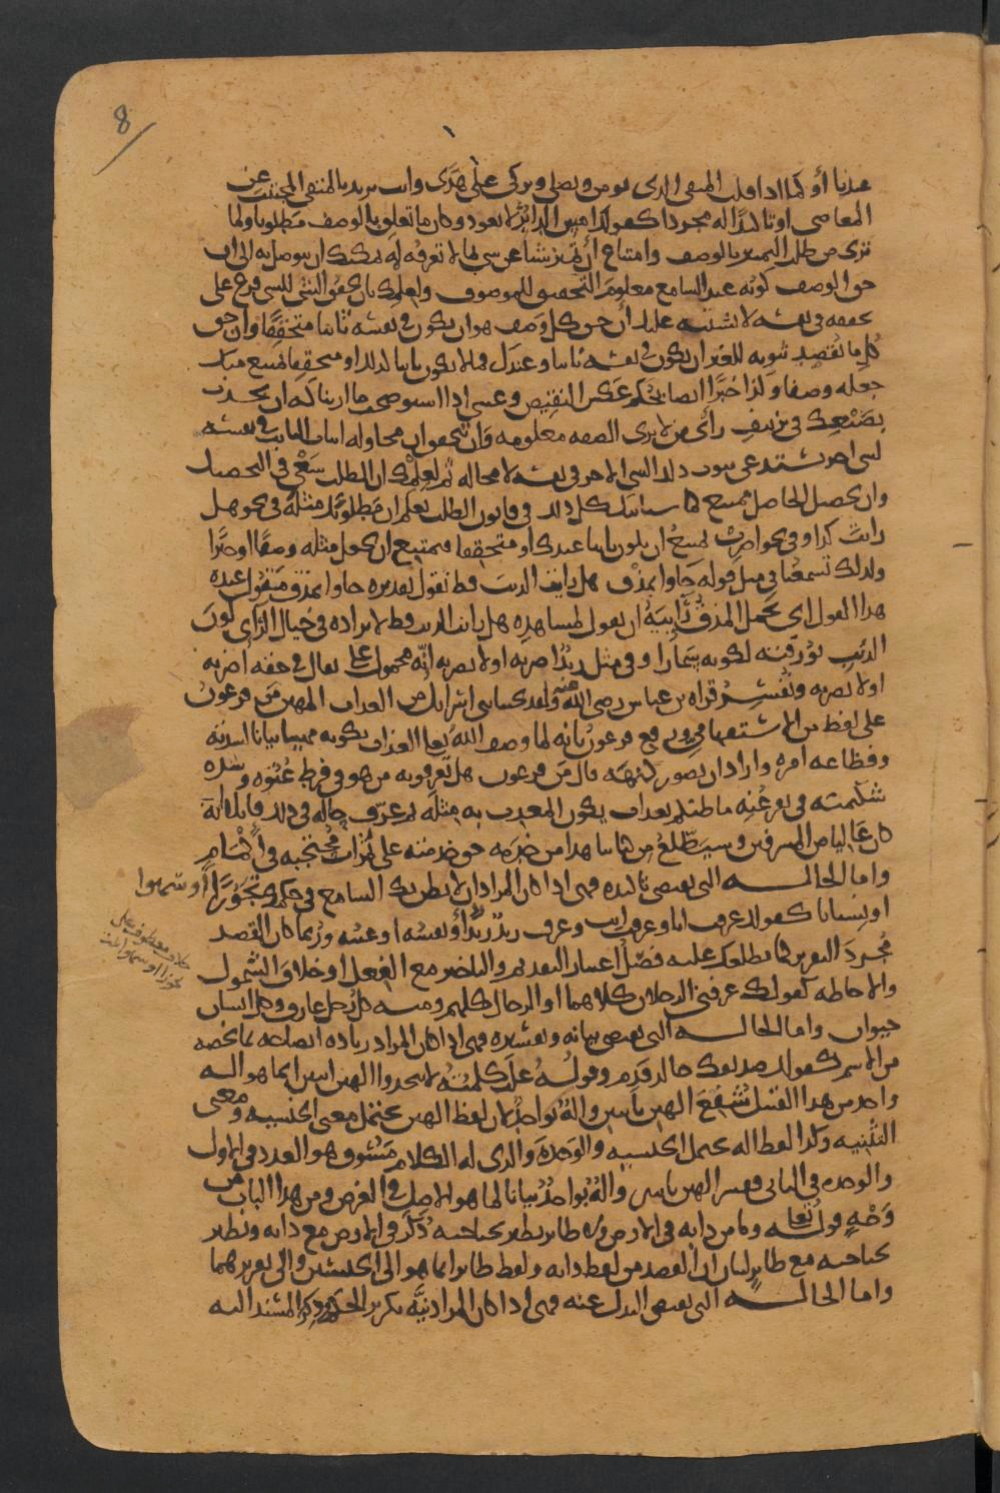 8
عندنا أو كما اذا قلت المتقى الذى يومن ويصلى ويزكى على هدى وانت تريد بالمتقى المجتنب عن
المعاصى او تاكيدا له مجردا كقولك امس الدابر لا يعود وكان ما تعلق بالوصف مطلوبا ولما
ترى من طلب التمييز بالوصف وامتناع ان تميز شيا عن شى بما لا تعرفه له يمكنك ان تتوصل به الى ان
حق الوصف كونه عند السامع معلوم التحقق للموصوف ولعلمك بان تحقق الشى للشى فرع على
تحققه فى نفسه لا يشتبه عليك ان حق كل وصف هو ان يكون فى نفسه ثابتا متحققا وان حق
كل ما تقصد ثبوته للغير ان يكون فى نفسه ثابتا وعندك فما لا يكون ثابتا كذلك او متحققا يمتنع منك
جعله وصفا وكذا خبرا ايضا بحكم عكس النقيض وعسى اذا استوضحت ما اريناكه ان يجذب
بضبعك فى تزييف راى من لا يرى الصفة معلومة وان تتحقق ان محاولة اثبات الثابت فى نفسه
لشى اخر تستدعى ثبوت ذلك الشى الاخر فى نفسه لا محالة ثم لعلمك ان الطلب سعى فى التحصيل
وان تحصيل الحاصل ممتنع كما سياتيك كل ذلك فى قانون الطلب تعلم ان مطلوبك مثله فى نحو هل
رايت كذا وفى نحو اضرب يمتنع ان يكون ثابتا عندك او متحققا فيمتنع ان تجعل مثله وصفا او خبرا
ولذلك تسمعنا فى مثل قوله جاوا بمذق هل رايت الذئب قط نقول تقديره جاوا بمذق مقول عنده
هذا القول اى يحمل المذق رائيه ان يقول لمشاهده هل رايت الذئب قط لايراده فى خيال الرائى لون
الذئب بورقته لكونه سمارا وفى مثل زيد اضربه او لا تضربه انه محمول على يقال فى حقه اضربه
او لا تضربه وتفسير قراة بن عباس رضى الله عنه ولقد نجينا بنى اسرائيل من العذاب المهين من فرعون
على لفظ من الاستفهامى ورفع فرعون بانه لما وصف الله تعالى العذاب بكونه مهينا بيانا لشدته
وفظاعة امره واراد ان يصور كنهه قال من فرعون هل تعرفونه من هو فى فرط عتوه وشدة
شكيمته فى تفرعنه ما ظنكم بعذاب يكون المعذب به مثله ثم عرف حاله فى ذلك قايلا انه
كان عاليا من المسرفين وسيطلع من كتابنا هذا من خدمه حق خدمته على كنزات محتجبه فى اكمام
واما الحالة التى تقتضى تاكيده فهى اذا كان المراد ان لا يظن بك السامع فى حكمك تجوزا او سهوا
او نسيانا كقولك عرفت انا وعرفت انت وعرف زيد زيد او نفسه او عينه وربما كان القصد
مجرد التقرير كما يطلعك عليه فصل اعتبار التقديم والتاخير مع الفعل او خلاف الشمول
خلاف معطوف على
تجوزا او سهوا
والاحاطة كقولك عرفنى الرجلان كلاهما او الرجال كلهم ومنه كل رجل عارف وكل انسان
حيوان واما الحالة التى تقتضى بيانه وتفسيره فهى اذا كان المراد زيادة ايضاحه بما يخصه
من الاسم كقولك صديقك خالد قدم وقوله علت كلمته لا تتخذوا الهين اثنين انما هو اله
واحد من هذا القبيل شفع الهين باثنين واله بواحد لان لفظ الهين يحتمل معنى الجنسية ومعنى
التثنية وكذا لفظ اله يحتمل الجنسية والوحدة والذى له الكلام مسوق هو العدد فى الاول
والوحدة فى الثانى ففسر الهين باثنين واله بواحد بيانا لما هو الاصل فى الغرض ومن هذا الباب من
وجه قوله تعالى وما من دابة فى الارض ولا طاير يطير بجناحيه ذكر فى الارض مع دابة ويطير
بجناحيه مع طاير لبيان ان القصد من لفظ دابة ولفظ طاير انما هو الى الجنسين والى تقريرهما
واما الحالة التى تقتضى البدل عنه فهى اذا كان المراد نية تكرير الحكم وذكر المسند اليه